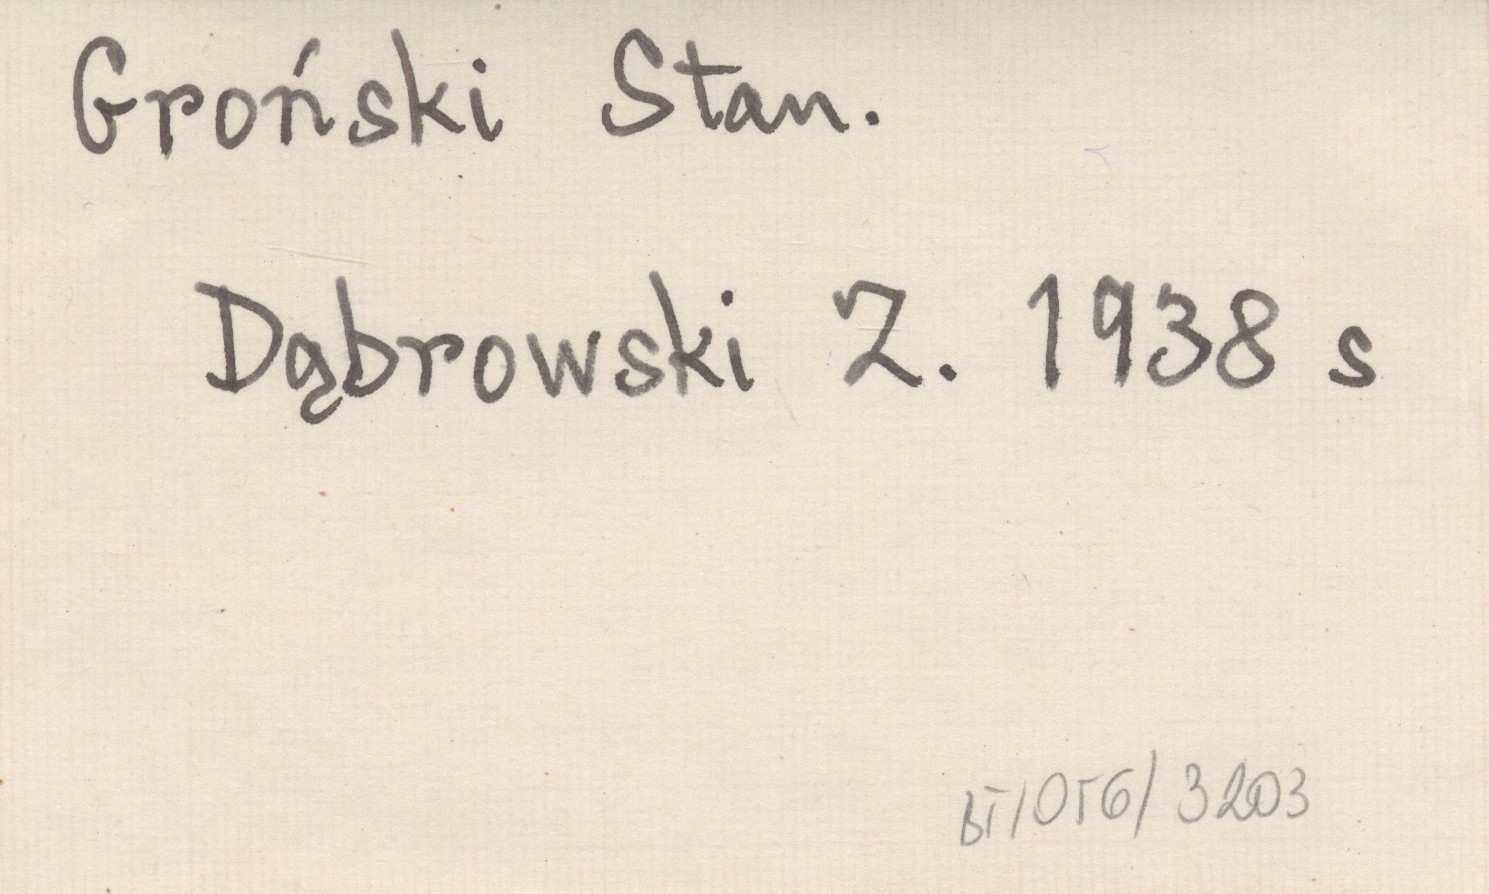 Groński Stan.
Dąbrowski Z. 1938 s
BT/OTG/3203